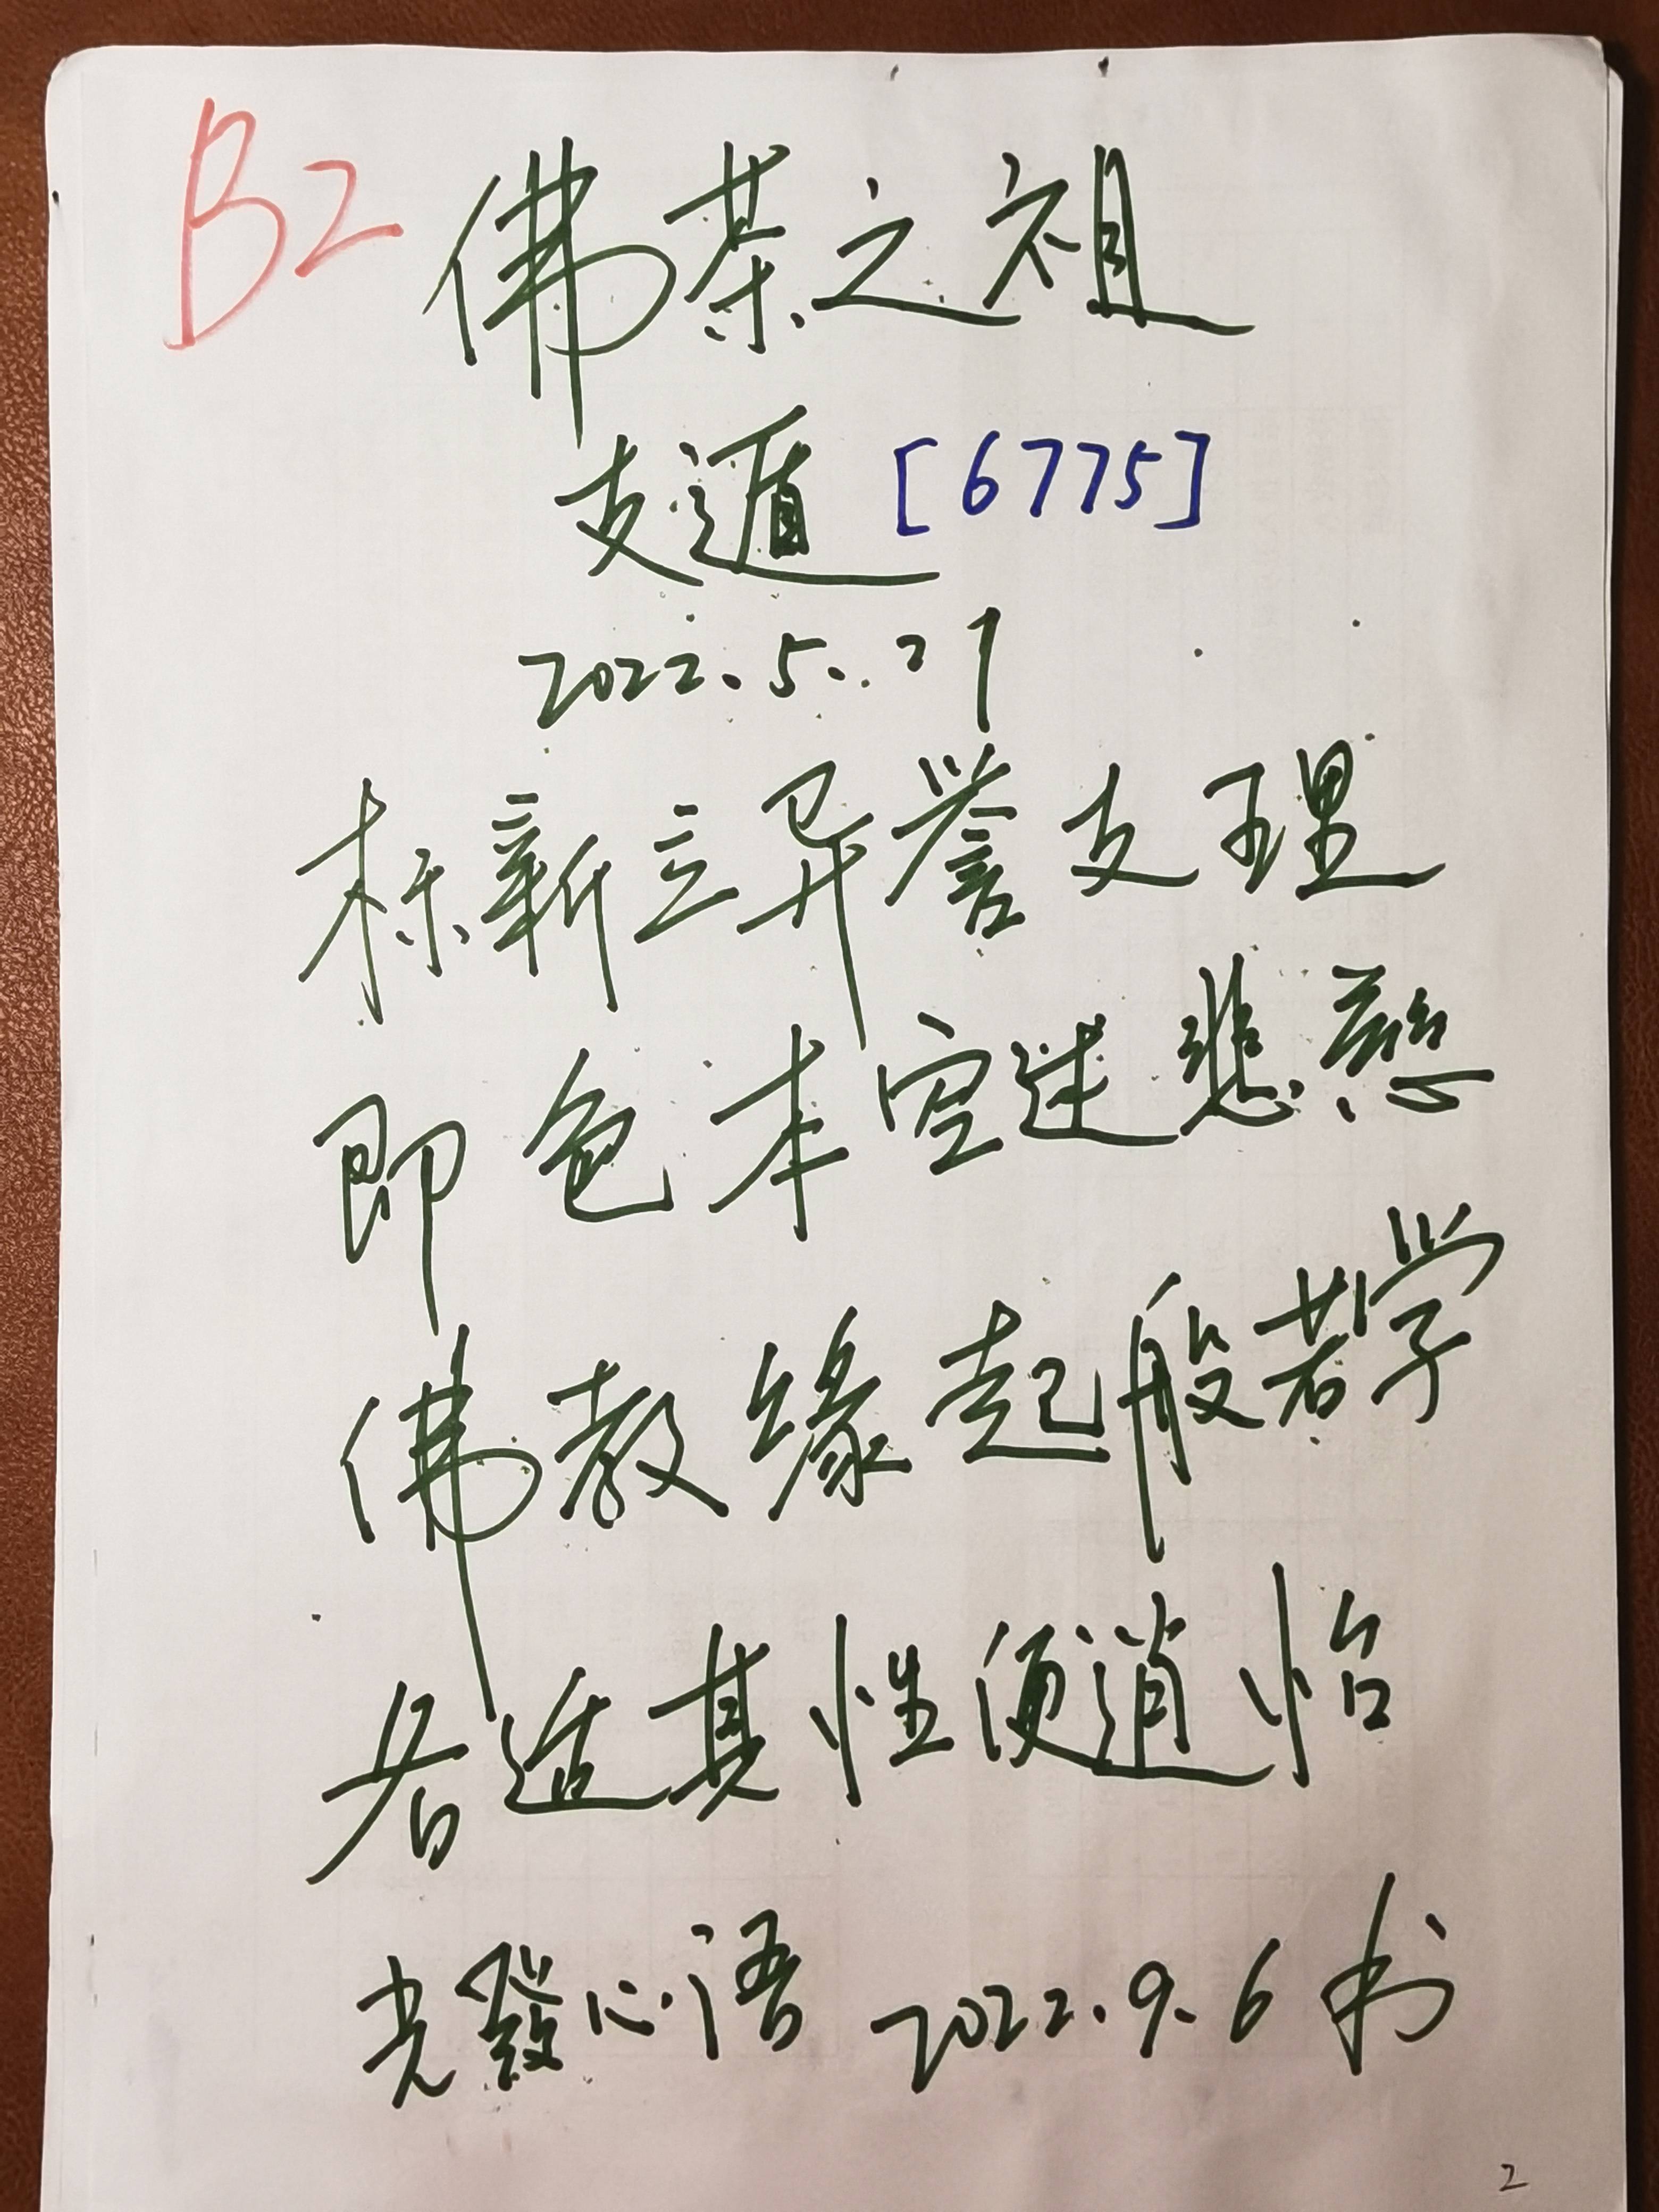 B2 佛茶之祖
支遁 [6775]
2022.5.27
标新立异誉支理
即色本空迷悲慈
佛教缘起般若学
各适其性便逍怡
光發心语 2022.9.6 书
2